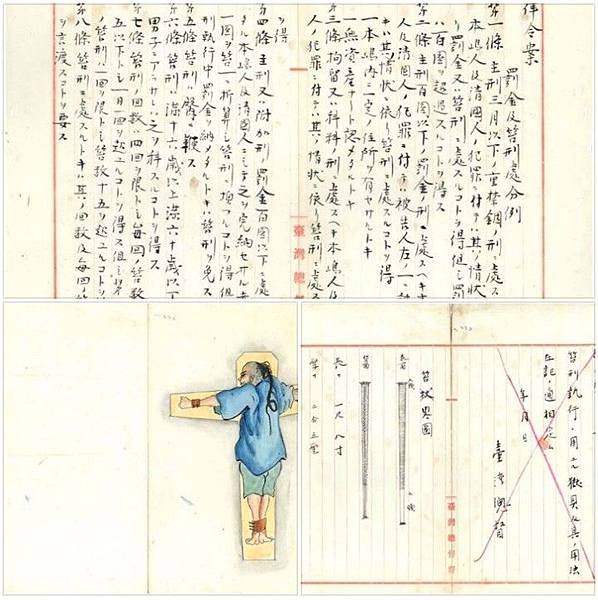 律令案
罰金及笞刑處分例
第一條 主刑三月以下ノ重禁錮ノ刑ニ處スヘキ
本島人及清國人ノ犯罪ニ付テハ其ノ情状
罰金又ハ笞刑ニ處スルコトヲ得但シ罰
百圓ヲ超過スルコトヲ得ス
第二條 主刑百圓以下ノ罰金ノ刑ニ處スヘキ本
人及清國人ノ犯罪ニ付テ被告人左ノ一ニ該
ハ其ノ情状ニ依リ笞刑ニ處スルコトヲ得
一 本島内ニ一定ノ住所ヲ有セサルトキ
一 無資産ナリト認メタルトキ
第三條 拘留又ハ科料ノ刑ニ處スヘキ本島人及
人ノ犯罪ニ付テハ其ノ情状ニ依リ笞刑
臺灣總督
ヲ得
第四條 主刑又ハ附加刑ノ罰金百圓以下ニ處
タル本島人及清國人ニシテ之ヲ完納セサル
一圓ヲ笞一ニ折算シ笞刑ニ換フルコトヲ得但
刑執行中罰金ヲ納メタルトキハ笞刑ヲ免ス
第五條 笞刑ハ臀ヲ鞭ス
第六條 笞刑ハ滿十六歳以上滿六十歳以下
男子ニアラサレハ之ヲ科スルコトヲ得ス
第七條 笞刑ノ回數ハ四回ヲ限トシ毎回笞數
五以下トシ一日一回ヲ超ユルコトヲ得ス但シ
笞刑ハ一回ヲ限トシ笞數十五ヲ超ユルコトヲ
第八條 笞刑ニ處スルトキハ其ノ回數及毎回ノ笞
ヲ言渡スコトヲ要ス
笞刑執行ニ用ユル獄具及其ノ用法
左記ノ通相定ム
年 月 日
臺灣總督
臺灣總督府
笞杖略圖
長サ 一尺八寸